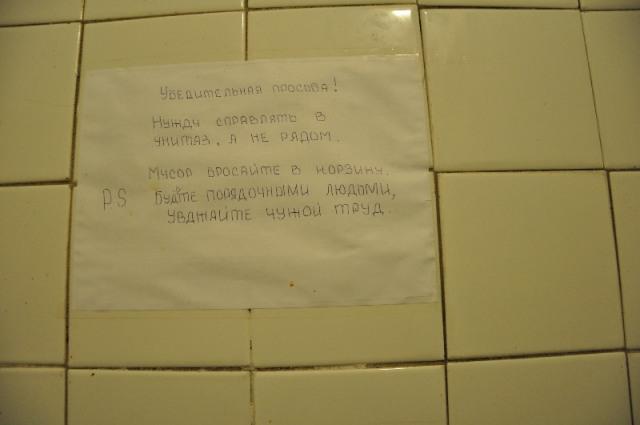 Убедительная просьба!
Нужду справлять в
унитаз, а не рядом.
Мусор бросайте в корзину.
P.S Будте порядочными людьми,
уважайте чужой труд.